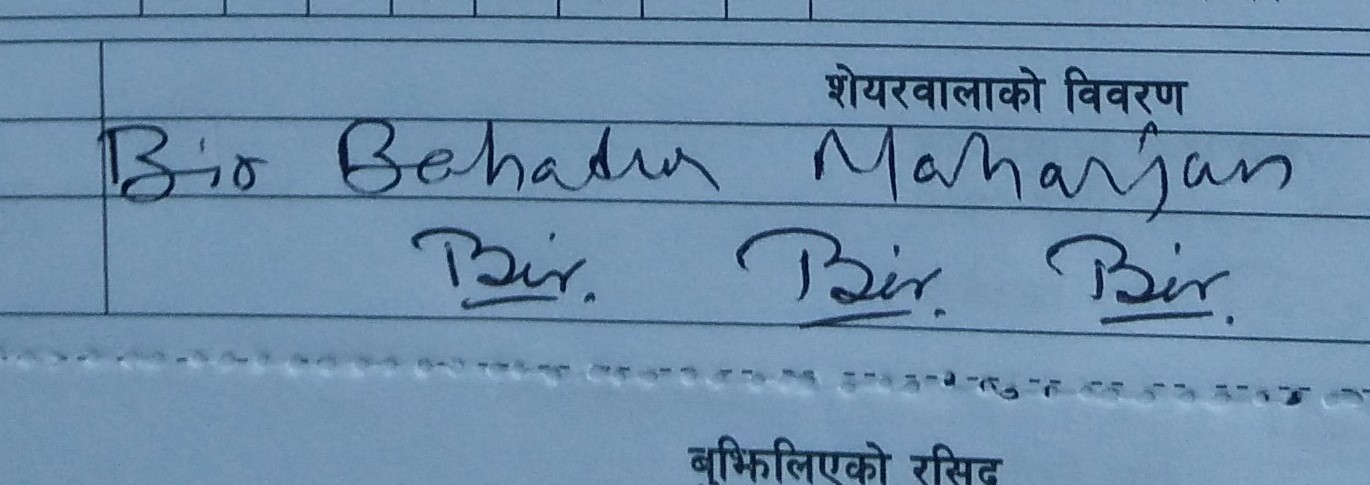 शेयरवालाको विवरण
Bir Behadur Maharjan
Bir. Bir. Bir.
बुझिलिएको रसिद